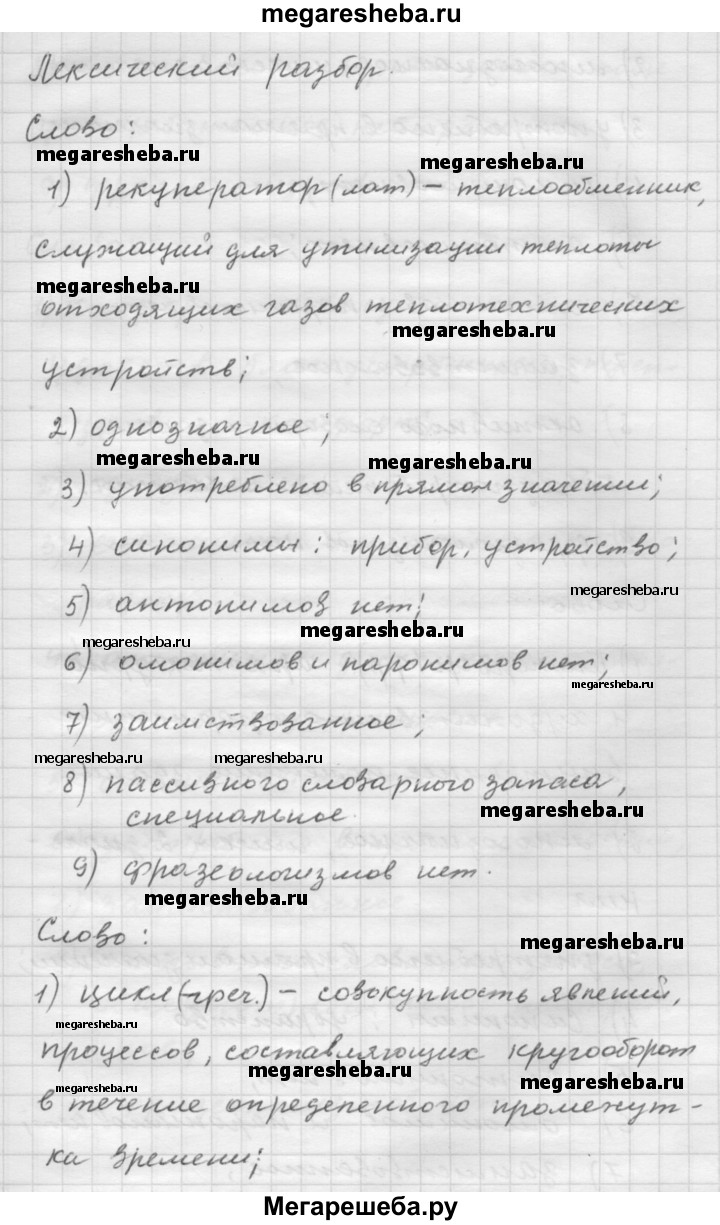 megaresheba.ru
Лексический разбор.
Слово:
megaresheba.ru megaresheba.ru
1) рекуператор (лат) – теплообменник,
служащий для утилизации теплоты
megaresheba.ru
отходящих газов теплотехнических
megaresheba.ru
устройств;
2) однозначное;
megaresheba.ru megaresheba.ru
3) употреблено в прямом значении;
4) синонимы: прибор, устройство;
megaresheba.ru
5) антонимов нет;
megaresheba.ru megaresheba.ru
6) омонимов и паронимов нет;
megaresheba.ru
7) заимствованное;
megaresheba.ru megaresheba.ru
8) пассивного словарного запаса,
специальное.
megaresheba.ru
9) фразеологизмов нет.
megaresheba.ru
Слово:
megaresheba.ru
1) цикл (греч.) – совокупность явлений,
megaresheba.ru
процессов, составляющих кругооборот
megaresheba.ru megaresheba.ru megaresheba.ru
в течение определенного промежут-
ка времени;
Мегарешеба.ру